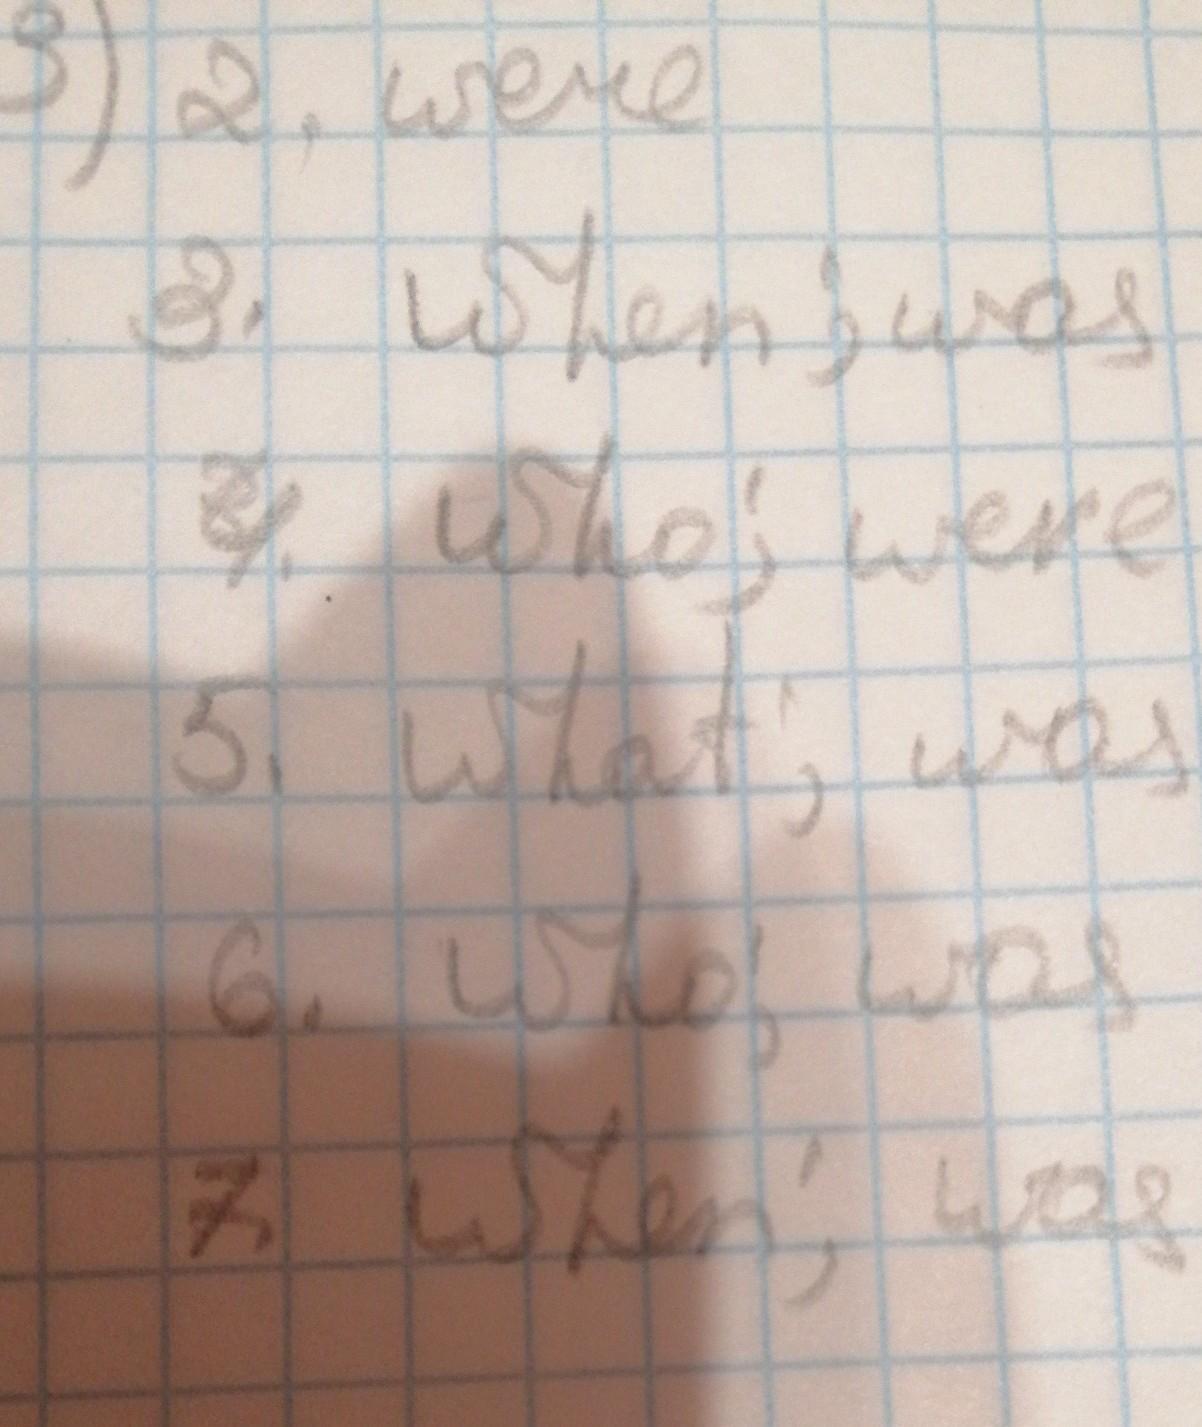 3) 2. were
3. When; was
4. Who; were
5. What; was
6. Who; was
7. When; was